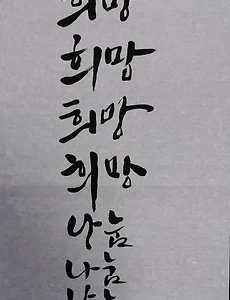 희망
희망
희망
희망
나눔
나눔